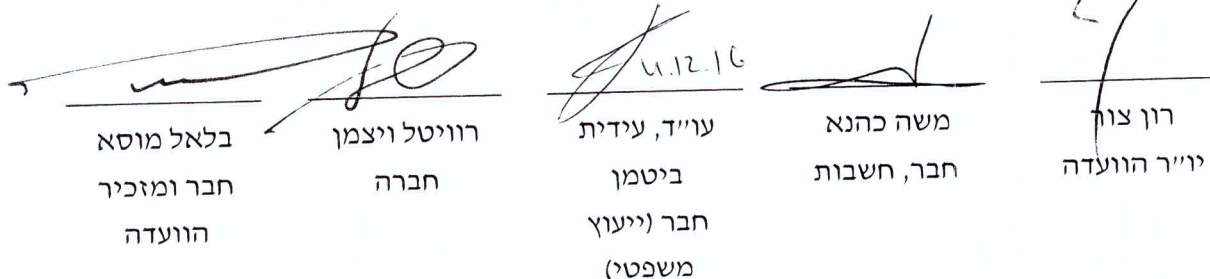 רון צור
יו״ר הוועדה
משה כהנא
חבר, חשבות
עו״ד, עידית
ביטמן
חבר (ייעוץ
משפטי)
רוויטל ויצמן
חברה
בלאל מוסא
חבר ומזכיר
הוועדה